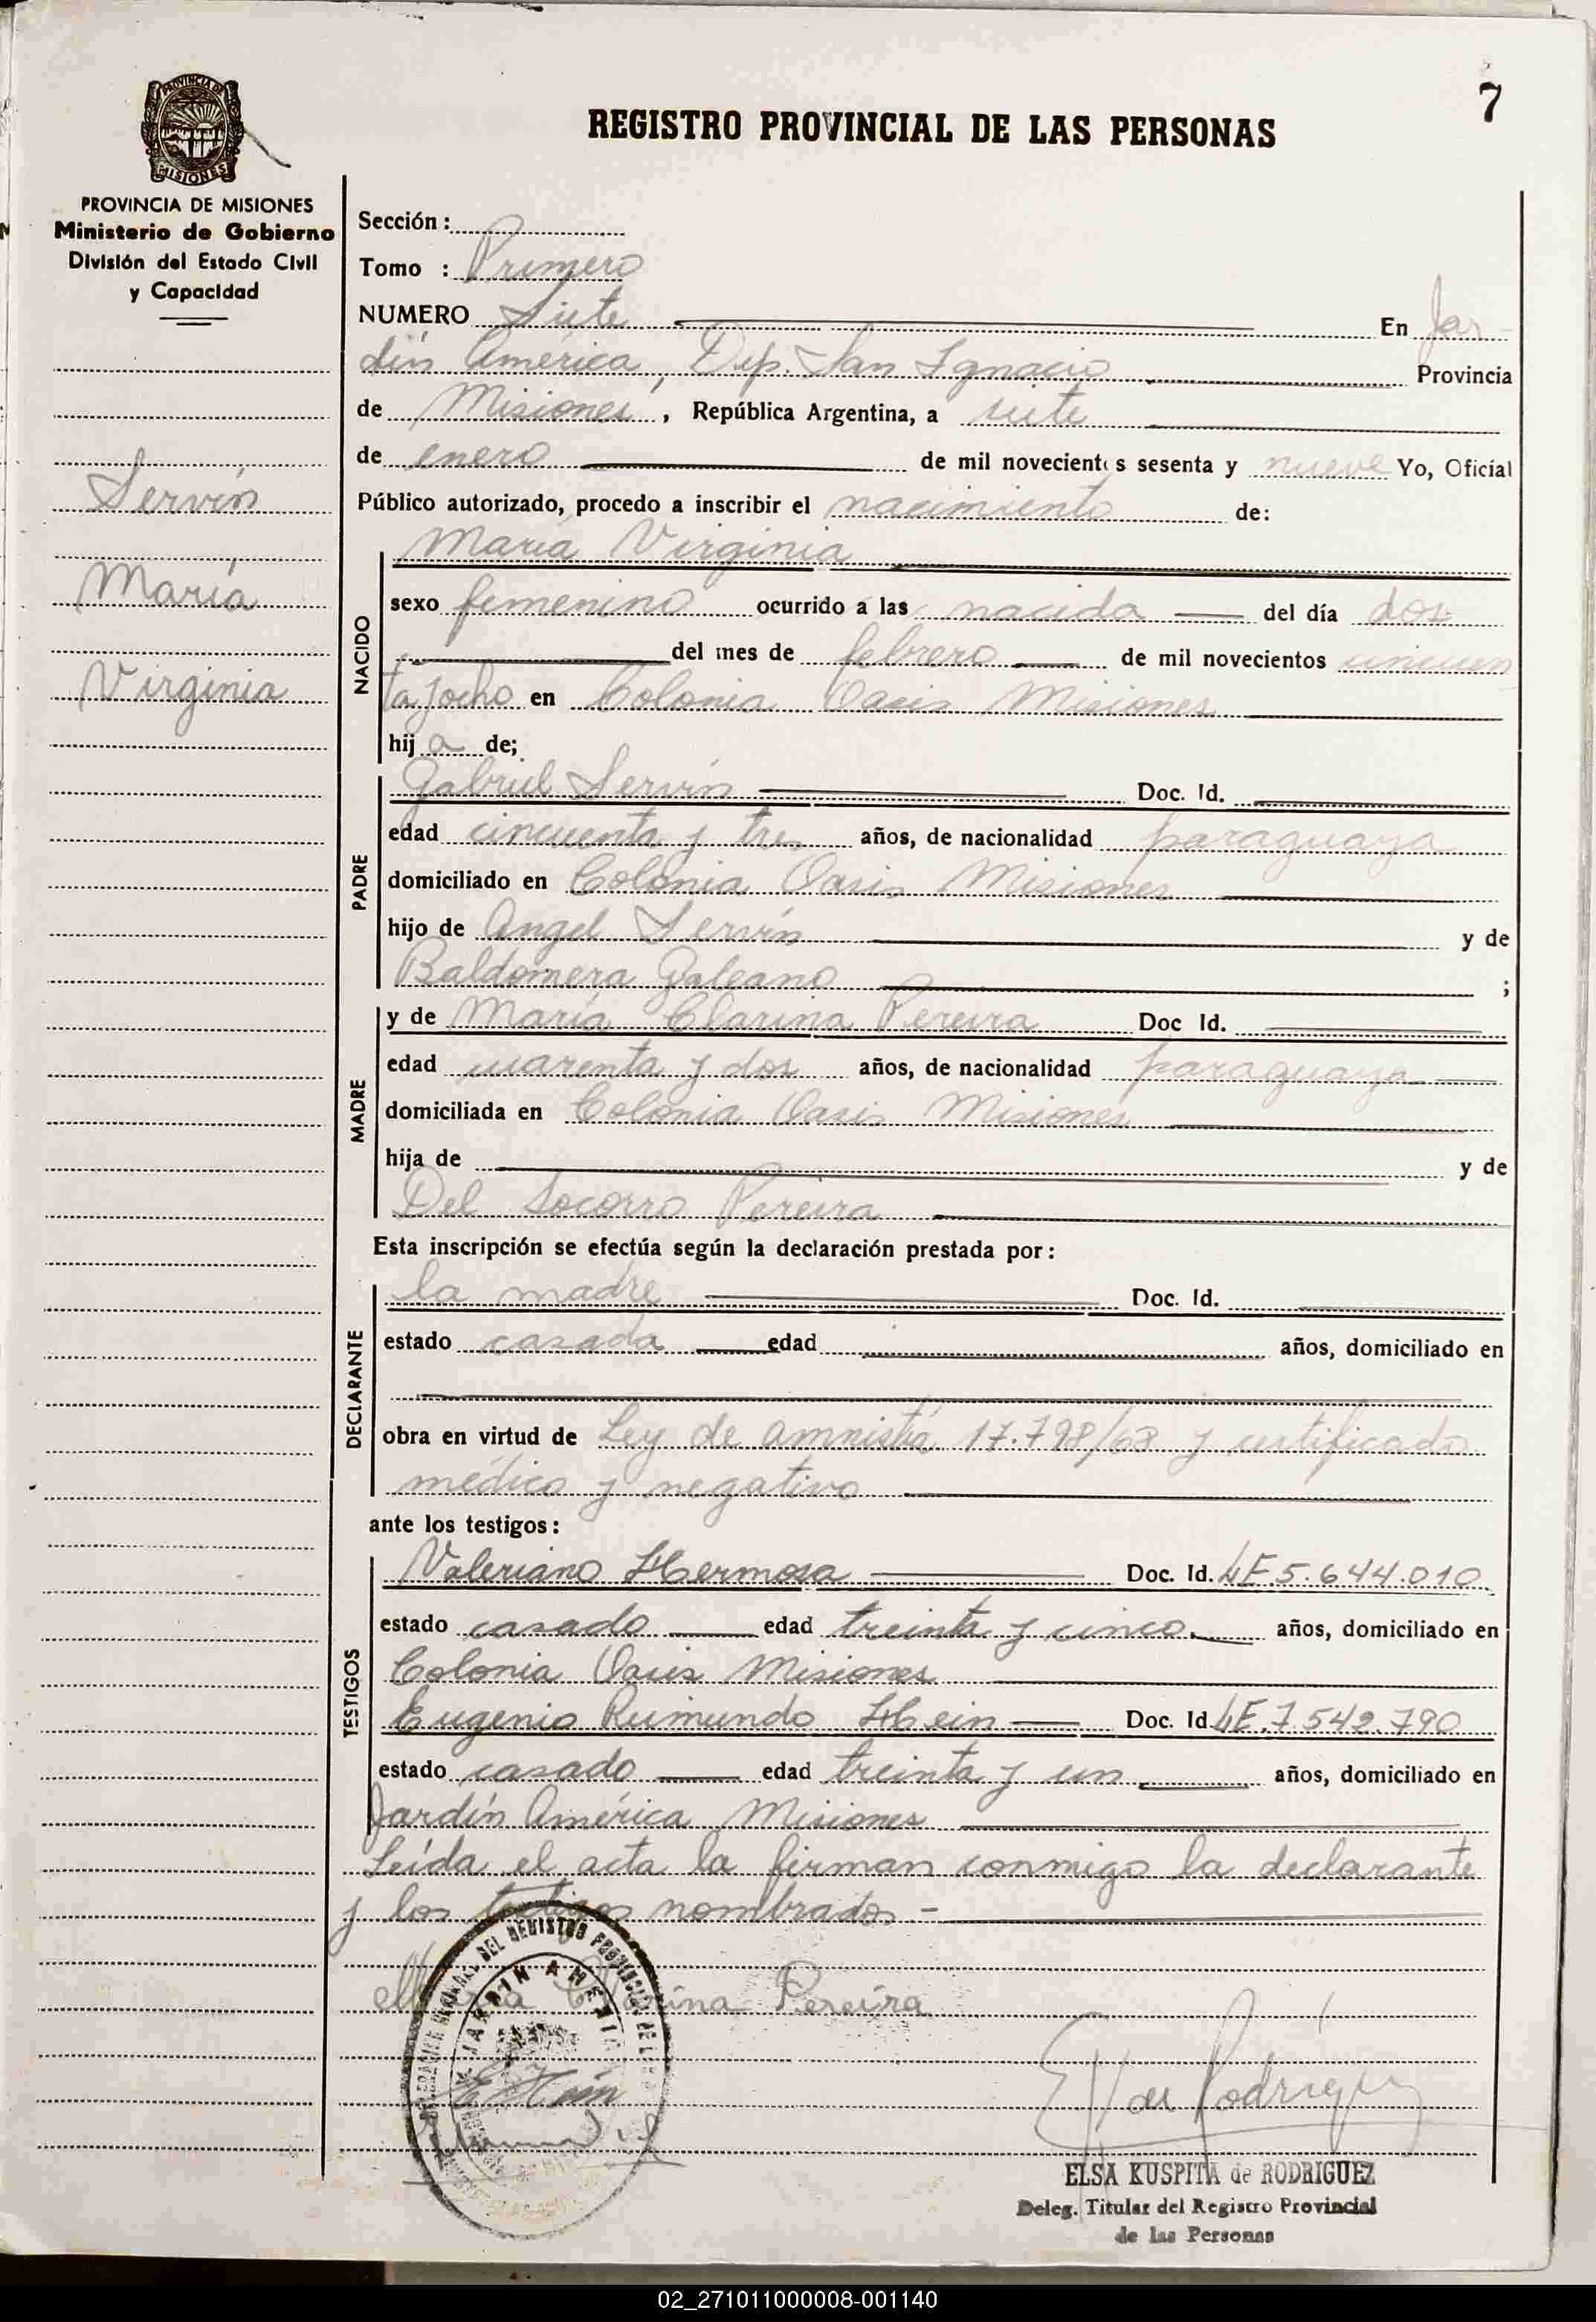 7
REGISTRO PROVINCIAL DE LAS PERSONAS
PROVINCIA DE MISIONES
MISIONES
PROVINCIA DE MISIONES
Ministerio de Gobierno
División del Estado Civil
y Capacidad
Servín
María
Virginia
Sección:
Tomo : Primero
NUMERO Siete En Jar-
dín América, Dep. San Ignacio Provincia
de Misiones, República Argentina, a siete
de enero de mil novecientos sesenta y nueve Yo, Oficial
Público autorizado, procedo a inscribir el nacimiento de:
NACIDO
María Virginia
sexo femenino ocurrido a las nacida del día dos
del mes de febrero de mil novecientos cincuen
ta y ocho en Colonia Oasis Misiones
hija de;
PADRE
Gabriel Servín Doc. Id.
edad cincuenta y tres años, de nacionalidad paraguaya
domiciliado en Colonia Oasis Misiones
hijo de Angel Servín y de
Baldomera Galeano ;
MADRE
y de María Clarina Pereira Doc Id.
edad cuarenta y dos años, de nacionalidad paraguaya
domiciliada en Colonia Oasis Misiones
hija de y de
Del Socorro Pereira
Esta inscripción se efectúa según la declaración prestada por:
DECLARANTE
la madre Doc. Id.
estado casada edad años, domiciliado en
obra en virtud de Ley de amnistía 17.798/68 y certificado
médico y negativo
ante los testigos:
TESTIGOS
Valeriano Hermosa Doc. Id. LE.5.644.010
estado casado edad treinta y cinco años, domiciliado en
Colonia Oasis Misiones
Eugenio Rimundo Hein Doc. Id LE.7.542.790
estado casado edad treinta y un años, domiciliado en
Jardín América Misiones
Leída el acta la firman conmigo la declarante
y los testigos nombrados.-
María Clarina Pereira
JARDIN AMERICA
EHein
ELSA KUSPITA de RODRIGUEZ
Deleg. Titular del Registro Provincial
de las Personas
02_271011000008-001140